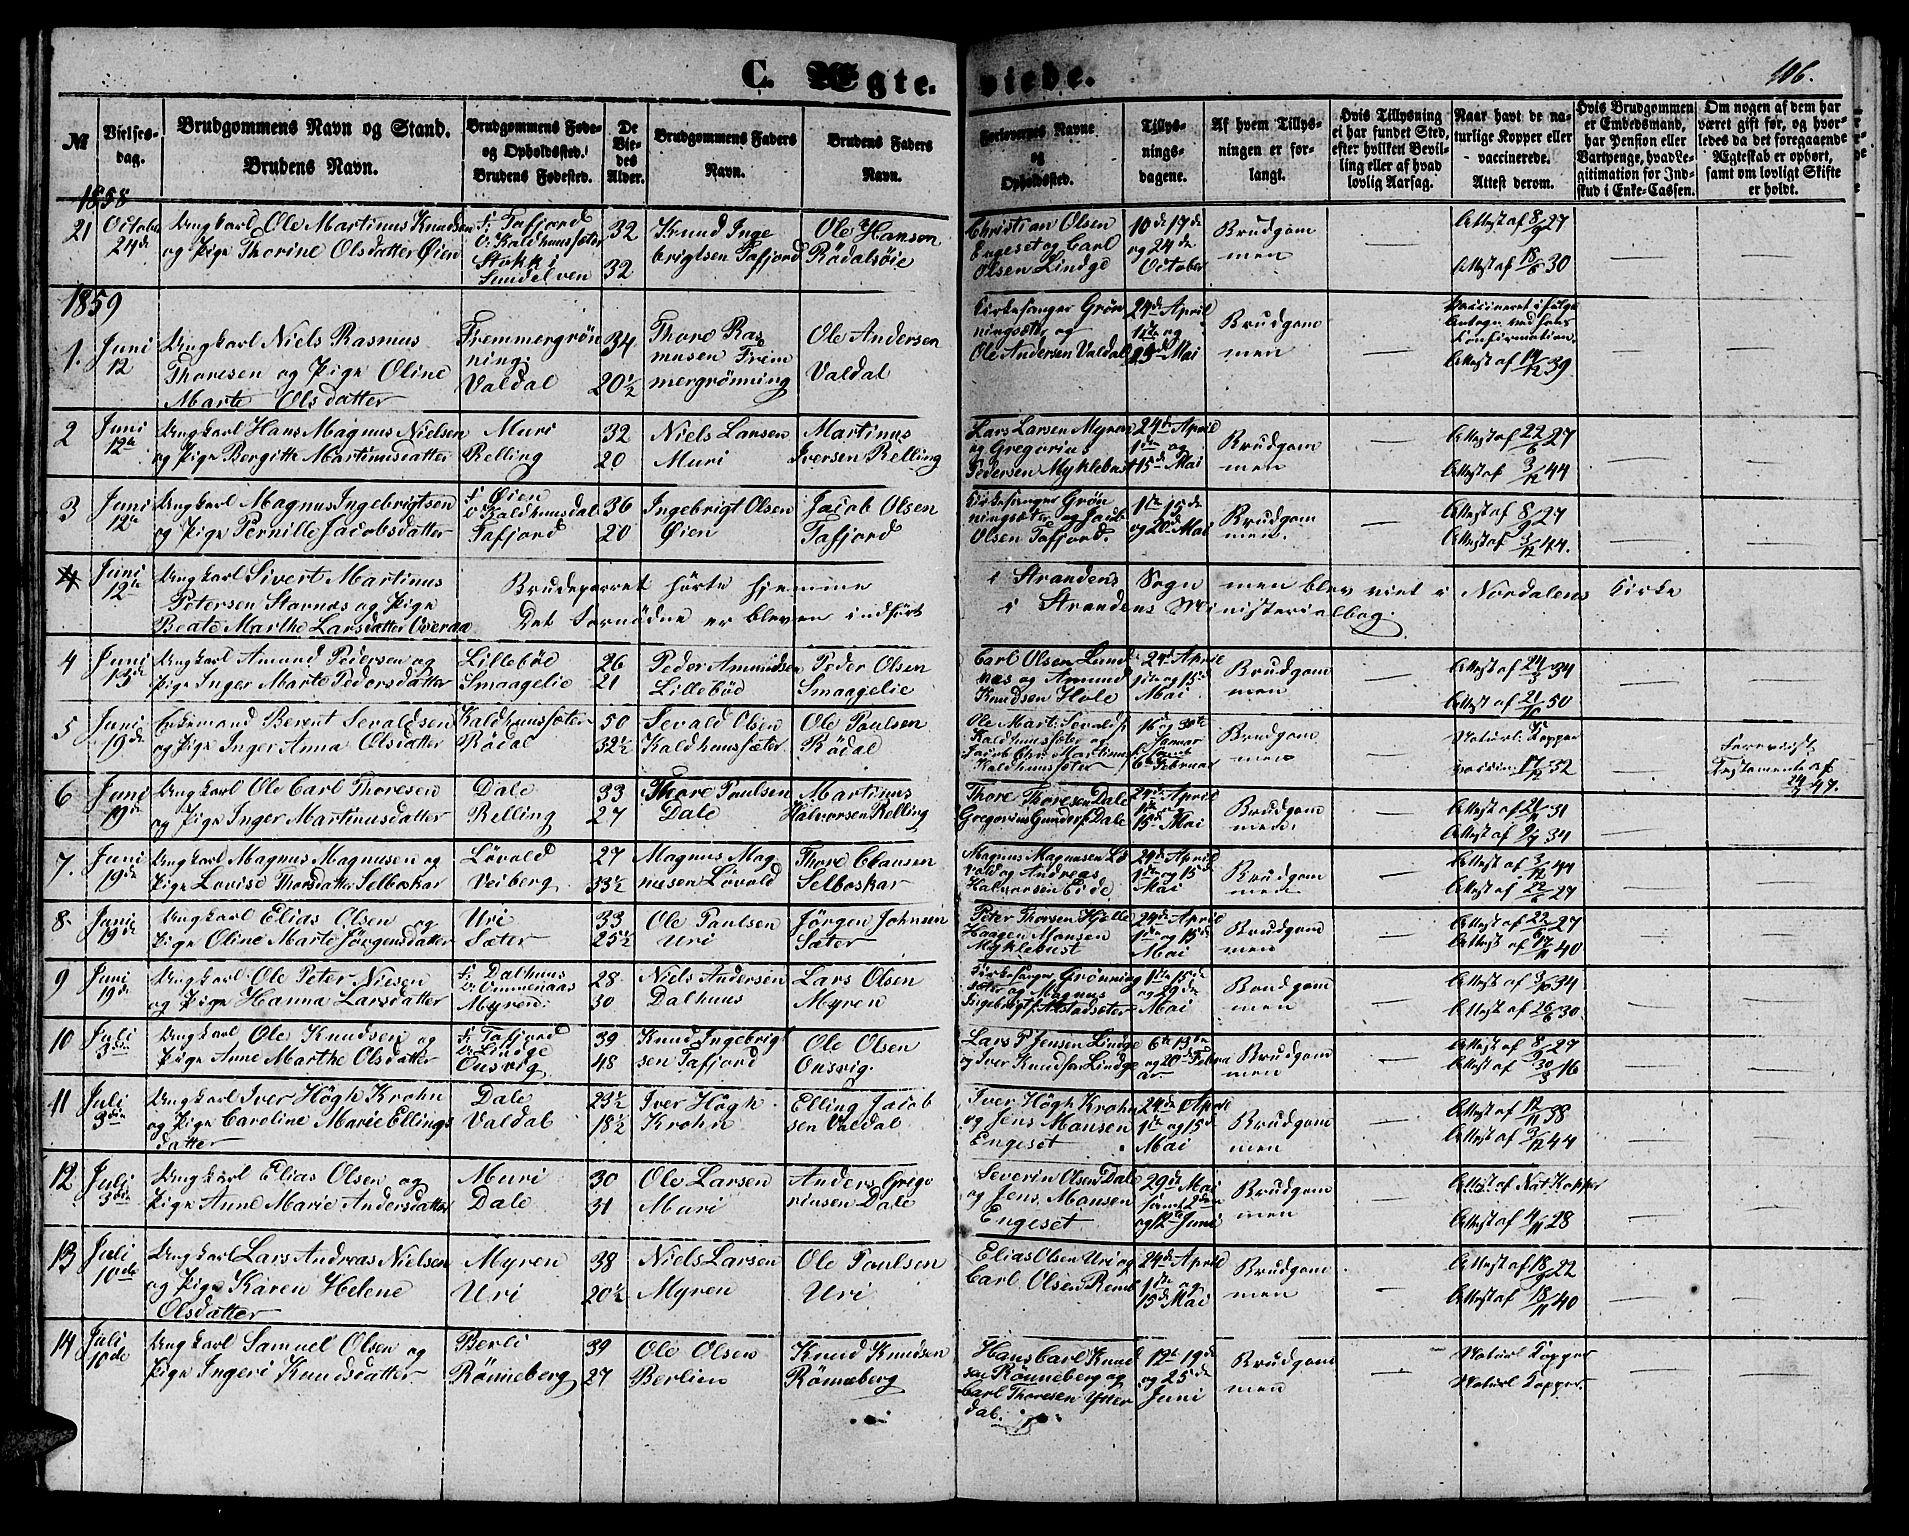 C. Ægte- viede.
106.
№
Vielses-dag.
Brudgommens Navn og Stand.
Brudens Navn.
Brudgommens Føde- og Opholdssted.
Brudens Fødested.
De Viedes Alder.
Brudgommens Faders Navn.
Brudens Faders Navn.
Forlovernes Navne og Opholdssted.
Tillysningsdagene.
Af hvem Tillysningen er forlangt.
Hvis Tillysning ei har fundet Sted, efter hvilken Bevilling eller af hvad lovlig Aarsag.
Naar havt de naturlige Kopper eller vaccinerede. Attest derom.
Hvis Brudgommen er Embedsmand, har Pension eller Vartpenge, hvad Legitimation for Indskud i Enke-Cassen.
Om nogen af dem har været gift før, og hvorledes da det foregaaende Ægteskab er ophørt, samt om lovligt Skifte er holdt.
1858
21 October 24de Ungkarl Ole Martinus Knudsen og Pige Thorine Olsdatter Øien
f: Tafjord o: Kaldhussæter Stokke i Sundelven 32 32
Knud Ingebrigtsen Tafjord Ole Hansen Rödalsöie
Christian Olsen Engeset og Carl Olsen Lindge 10de 17de og 24de October Brudgommen — Attest af 8/9 27 Attest af 18/6 30 — —
1859
1. Juni 12 Ungkarl Niels Rasmus Thoresen og Pige Oline Marte Olsdatter
Fremmergrönning: Valdal 34 20½
Thore Rasmusen Fremmergrönning Ole Andersen Valdal
Kirkesanger Grönningsæter og Ole Andersen Valdal 24de April 1ste og 15de Mai Brudgommen — Vaccineret ifølge Antegn. ved hans Confirmation. Attest af 14/12 39 — —
2 Juni 12te Ungkarl Hans Magnus Nielsen og Pige Bergitte Martinusdatter
Muri Relling 32 20
Niels Larsen Muri Martinus Iversen Relling
Lars Larsen Myren og Gregorius Pedersen Myklebust 24de April 1ste og 15de Mai Brudgommen — Attest af 22/6 27 Attest af 3/12 44 — —
3 Juni 12te Ungkarl Magnus Ingebrigtsen og Pige Pernille Jacobsdatter
f: Øien o: Kaldhusdal Tafjord 36 20
Ingebrigt Olsen Øien Jacob Olsen Tafjord
Kirkesanger Grönningsæter og Jacob Olsen Tafjord. 1ste 15de og 20de Mai Brudgommen. — Attest af 8/9 27 Attest af 3/12 44. — —
4 Juni 12te Ungkarl Sivert Martinus Petersen Stavnæs og Pige Beate Marthe Larsdatter Overaa
Brudeparret hörte hjemme i Strandens Sogn men blev viet i Nordalens Kirke
Det fornödne er bleven indfört i Strandens Ministerialbog.
4 Juni 13de Ungkarl Amund Pedersen og Pige Inger Marte Pedersdatter
Lilleböe Smaagelie 26 21
Peder Amundsen Lillebøe Peder Olsen Smaagelie
Carl Olsen Lundnæs og Amund Knudsen Hole 24de April 1ste og 15de Mai Brudgommen — Attest af 24/3 34 Attest af 21/10 50 — —
5 Juni 19de Enkemand Berent Sevaldsen og Pige Inger Anna Olsdatter
Kaldhussæter Rödal 50 32½
Sevald Olsen Kaldhussæter Ole Paulsen Rödal
Ole Mart: Sevalds: Kaldhussæter og Jacob Chr: Martinus: Kaldhussæter 16 og 30te Januar samt 6te Februar Brudgommen — Naturl: Kopper vaccin: 17/12 32 — Forevist Testamente af 24/3 47.
6 Juni 19de Ungkarl Ole Carl Thoresen og Pige Inger Martinusdatter
Dale Relling 33 27
Thore Paulsen Dale Martinus Halvorsen Relling
Thore Thoresen Dale Gregorius Gunders: Dale 24de April 1ste og 15de Mai Brudgommen. — Attest af 21/11 31 Attest af 2/7 34 — —
7. Juni 19de Ungkarl Magnus Magnusen og Pige Lovise Thorsdatter Selboskar
Løvold Veiberg 27 33½
Magnus Magnusen Løvold Thore Clausen Selboskar
Magnus Magnusen Løvold og Andreas Halvorsen Eide 24de April 1ste og 15de Mai Brudgommen — Attest af 3/12 44 Attest af 22/6 27 — —
8. Juni 19de Ungkarl Elias Olsen og Pige Oline Marte Jörgensdatter
Uri Sæter 33 25½
Ole Paulsen Uri Jörgen Johnsen Sæter
Peter Thorsen Hjelle Haagen Monsen Myklebust 24de April 1ste og 15de Mai Brudgommen — Attest af 22/6 27 Attest af 17/11 40 — —
9 Juni 19de Ungkarl Ole Peter Nielsen og Pige Hanna Larsdatter
f: Dalhuus o: Ommenaas Myren: 28. 30
Niels Andersen Dalhuus Lars Olsen Myren
Kirkesanger Grönningsæter og Magnus Ingebrigts: Alstadsæter 1ste 15de og 29de Mai Brudgommen — Attest af 3/10 34 Attest af 26/6 30. — —
10 Juli 3die Ungkarl Ole Knudsen og Pige Anne Marthe Olsdatter
f: Tafjord o: Lindge Onsvig 39 48
Knud Ingebrigtsen Tafjord Ole Olsen Onsvig.
Lars P. Jensen Lindge og Iver Knudsen Lindge 6te 13de og 20de Februar Brudgommen — Attest af 8/9 27 Attest af 30/3 16 — —
11 Juli 3die Ungkarl Iver Högh Krohn og Pige Caroline Marie Ellingsdatter
Dale Valdal 23½ 18½
Iver Högh Krohn Elling Jacobsen Valdal
Iver Högh Krohn og Jens Monsen Engeset 24de April 1ste og 15de Mai Brudgommen — Attest af 12/11 38 Attest af 3/12 44 — —
12 Juli 3die Ungkarl Elias Olsen og Pige Anne Marie Andersdatter
Muri Dale 30 31
Ole Larsen Muri Anders Grigoriusen Dale
Severin Olsen Dale og Jens Monsen Engeset 29de Mai samt 2den og 12te Juni Brudgommen — Attest af Nat: Kopper Attest af 4/11 28 — —
13 Juli 10de Ungkarl Lars Andreas Nielsen og Pige Karen Helene Olsdatter
Myren Uri 38 20½
Niels Larsen Myren Ole Paulsen Uri
Elias Olsen Uri og Carl Olsen Remb 24de April 1ste og 15de Mai Brudgommen — Attest af 18/9 22 Attest af 18/11 40 — —
14 Juli 10de Ungkarl Samuel Olsen og Pige Ingeri Knudsdatter
Berli Rönneberg 39 27
Ole Olsen Berlien Knud Knudsen Rönneberg
Hans Carl Knudsen Rönneberg og Carl Thoresen Ytterdal. 12te 19de og 25de Juni Brudgommen — Naturl Kopper Naturl Kopper. — —